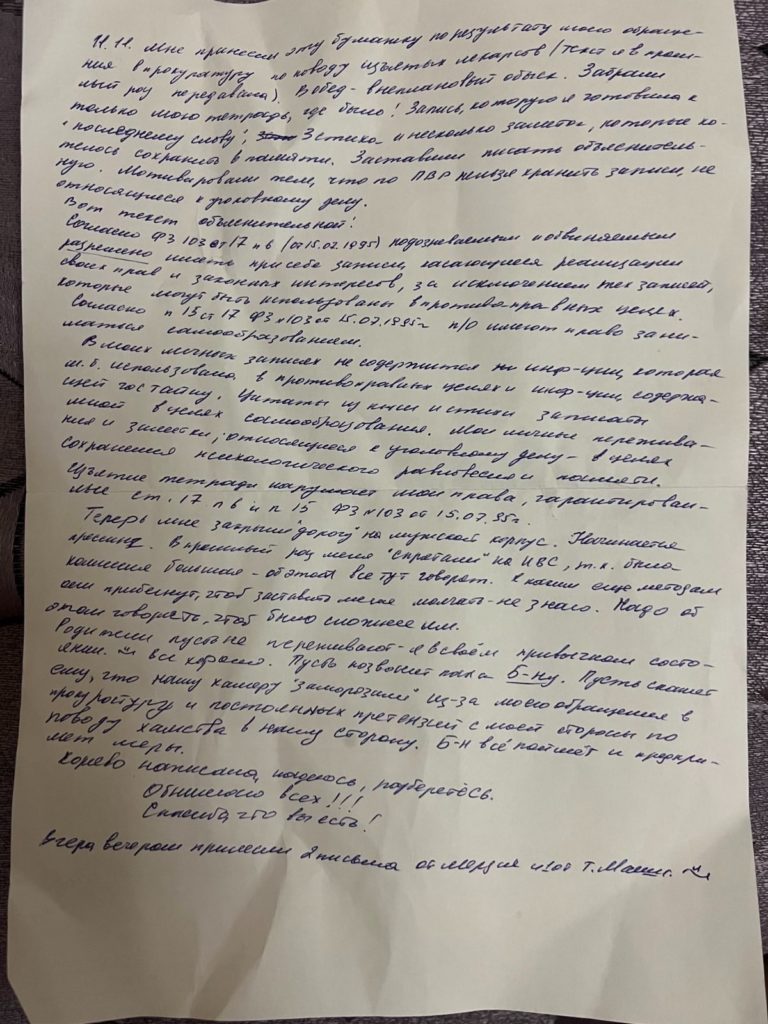 11.11. Мне принесли эту бумажку по результату моего обраще-
ния в прокуратуру по поводу изъятых лекарств (текст я в прош-
лый раз передавала). В обед - внеплановый обыск. Забрали
только мою тетрадь, где было! Запись, которую я готовила к
"последнему слову", 3 стиха и несколько заметок, которые хо-
телось сохранить в памяти. Заставили писать объяснитель-
ную. Мотивировали тем, что по ПВР нельзя хранить записи, не
относящиеся к уголовному делу.
Вот текст объяснительной:
Согласно ФЗ 103 ст 17 п 6 (от 15.07.1995) подозреваемым и обвиняемым
разрешено иметь при себе записи, касающиеся реализации
своих прав и законных интересов, за исключением тех записей,
которые могут быть использованы в противоправных целях.
Согласно п 15 ст 17 ФЗ №103 от 15.07.1995г п/о имеют право зани-
маться самообразованием.
В моих личных записях не содержится ни инф-ции, которая
м.б. использована в противоправных целях и инф-ции, содержа-
щей гостайну. Цитаты из книг и стихи записаты
мной в целях самообразования. Мои личные пережива-
ния и заметки, относящиеся к уголовному делу - в целях
сохранения психологического равновесия и памяти.
Изъятие тетради нарушает мои права, гарантирован-
ные ст. 17 п 6 и п 15 ФЗ №103 от 15.07.95г.
Теперь мне закрыли "дорогу" на мужской корпус. Начинается
прессинг. В прошлый раз меня "спрятали" на ИВС, т.к. была
комиссия большая - об этом все тут говорят. К каким ещё методам
они прибегнут, чтоб заставить меня молчать - не знаю. Надо об
этом говорить, чтоб было сложнее им.
Родители пусть не переживают - я в своём привычном состо-
янии. Всё хорошо. Пусть позвонит Б-ну. Пусть скажет
ему, что нашу камеру "заморозили" из-за моего обращения в
прокуратуру и постоянных претензий с моей стороны по
поводу хамства в нашу сторону. Б-н всё поймёт и предпри-
мет меры.
Коряво написала, надеюсь, разберетесь.
Обнимаю всех!!!
Спасибо, что вы есть!
Вчера вечером принесли 2 письма от и 1 от Т. Маши.